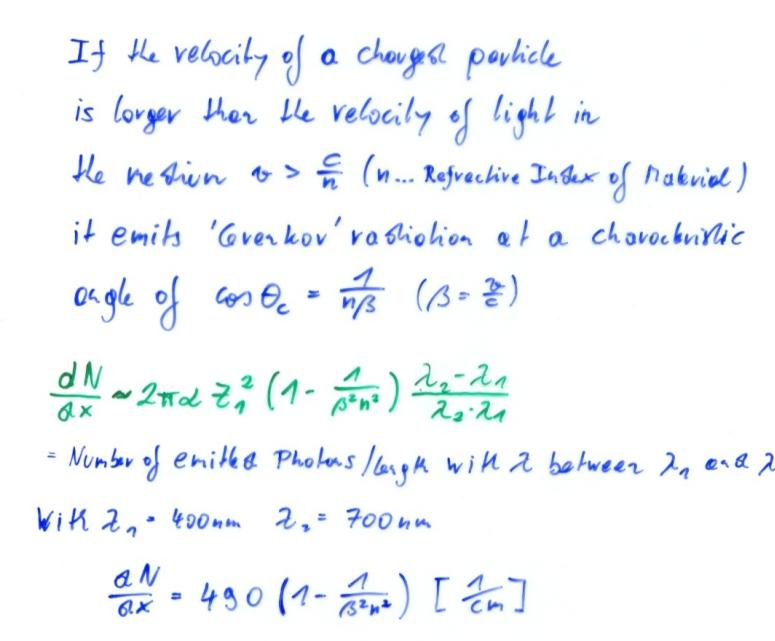 If the velocity of a charged particle
is larger than the velocity of light in
the medium v > c/n (n... Refractive Index of Material)
it emits 'Cerenkov' radiation at a characteristic
angle of cos θ_c = 1/(nβ) (β = v/c)
dN/dx ~ 2πα Z₁² (1 - 1/(β²n²)) (λ₂-λ₁)/(λ₂·λ₁)
= Number of emitted Photons/length with λ between λ₁ and λ
With λ₁ = 400nm λ₂ = 700nm
dN/dx = 490 (1 - 1/(β²n²)) [1/cm]